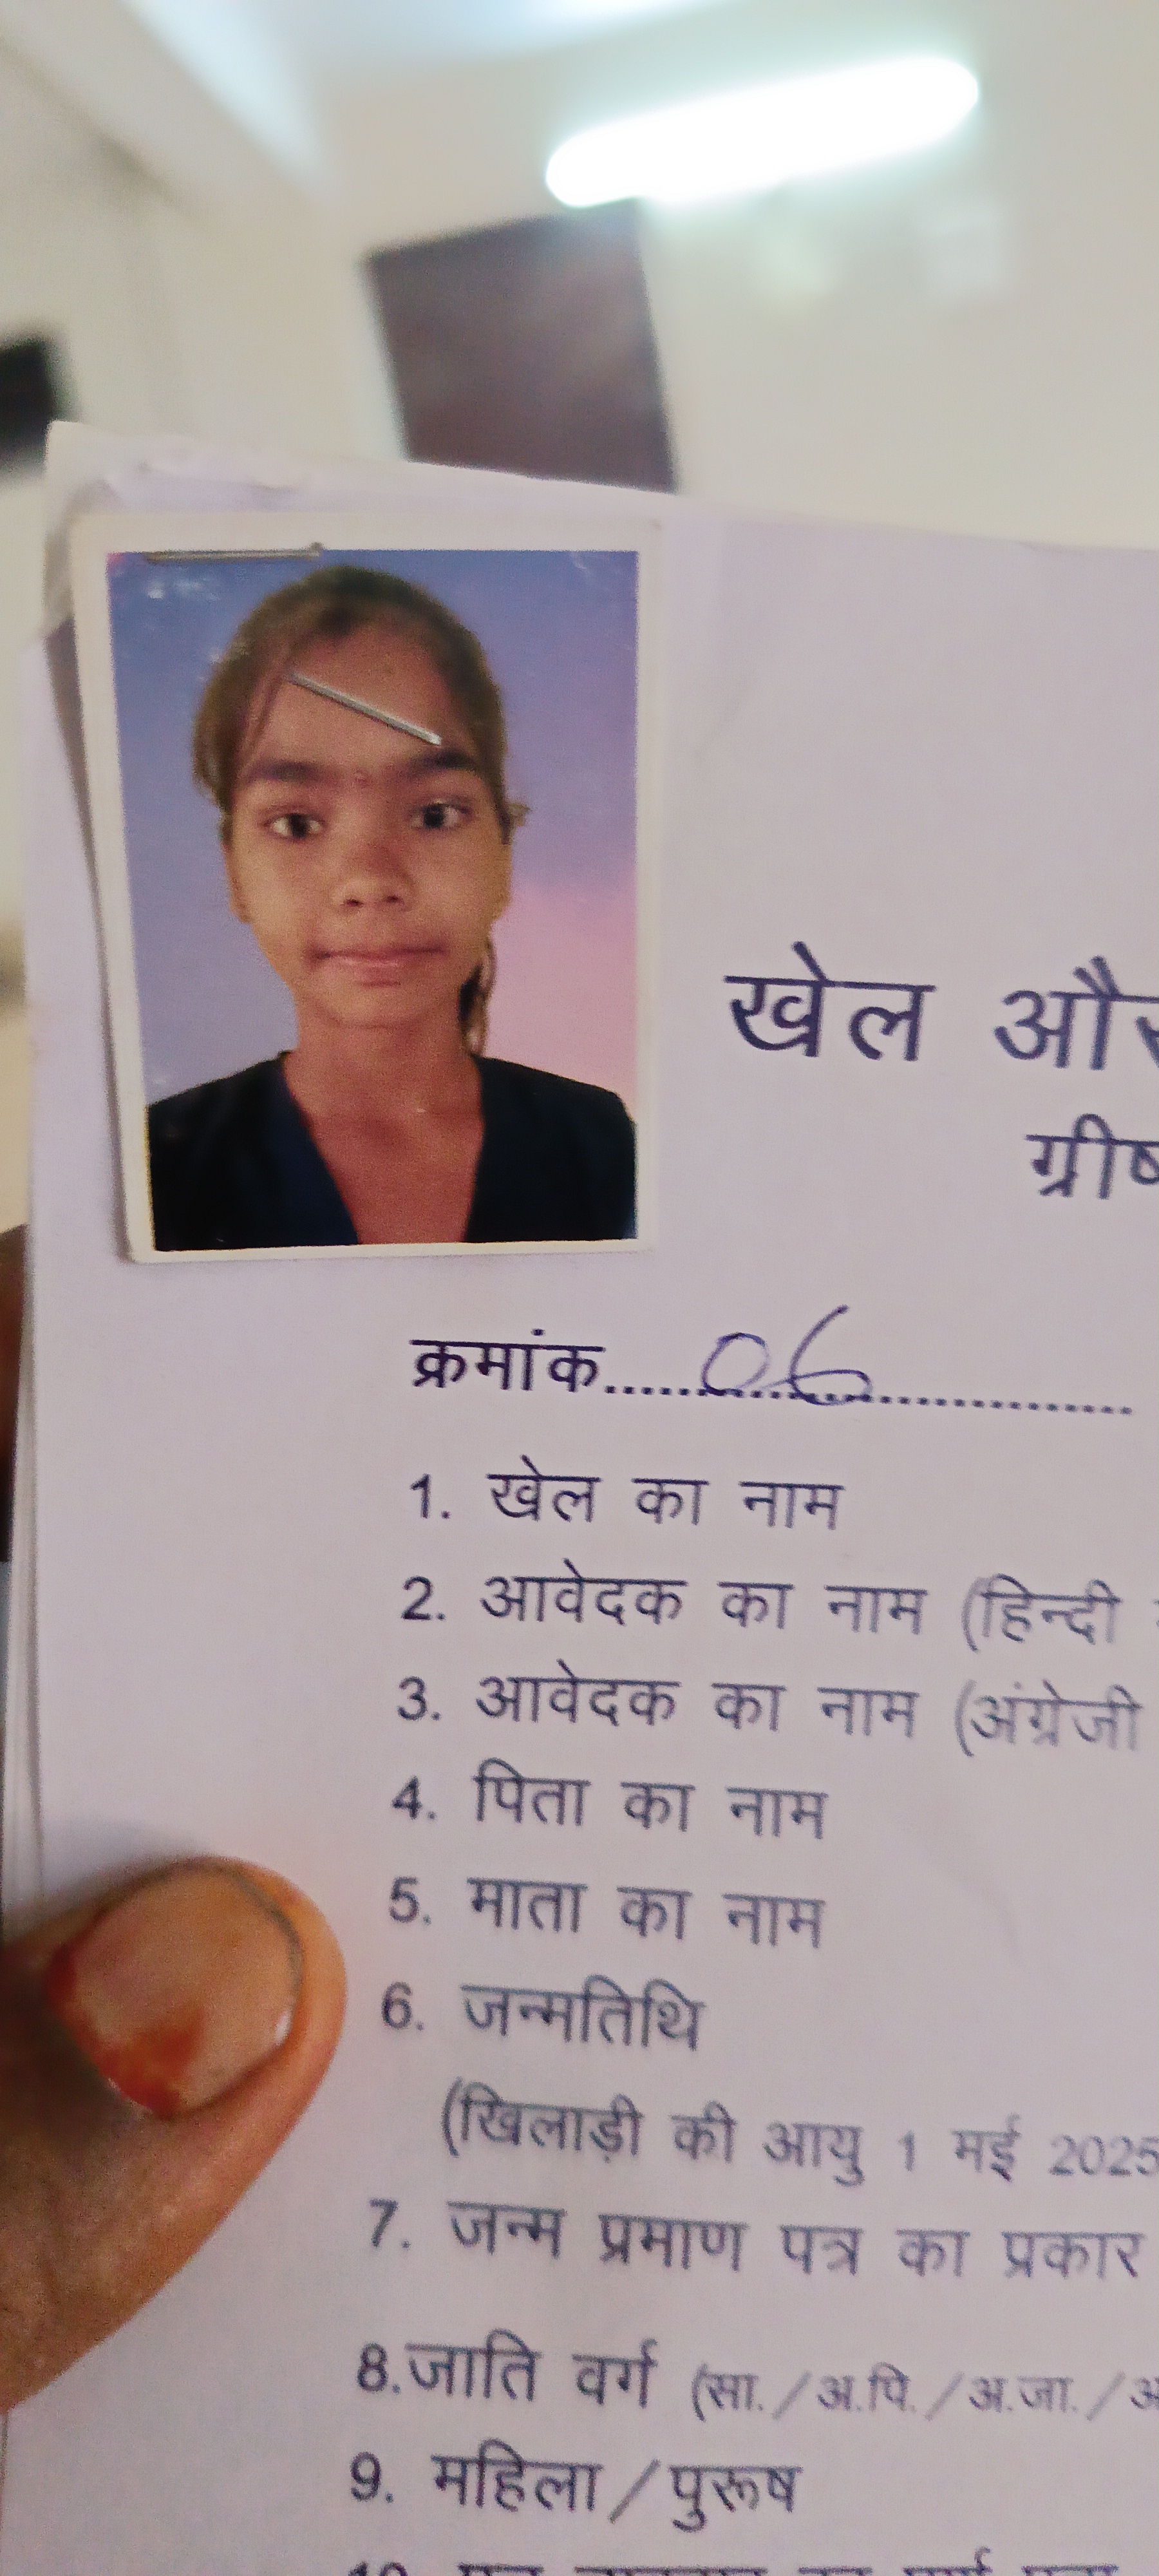 खेल और
ग्रीष
क्रमांक.....06..................
1. खेल का नाम
2. आवेदक का नाम (हिन्दी
3. आवेदक का नाम (अंग्रेजी
4. पिता का नाम
5. माता का नाम
6. जन्मतिथि
(खिलाड़ी की आयु 1 मई 2025
7. जन्म प्रमाण पत्र का प्रकार
8.जाति वर्ग (सा./अ.पि./अ.जा./अ
9. महिला/पुरूष